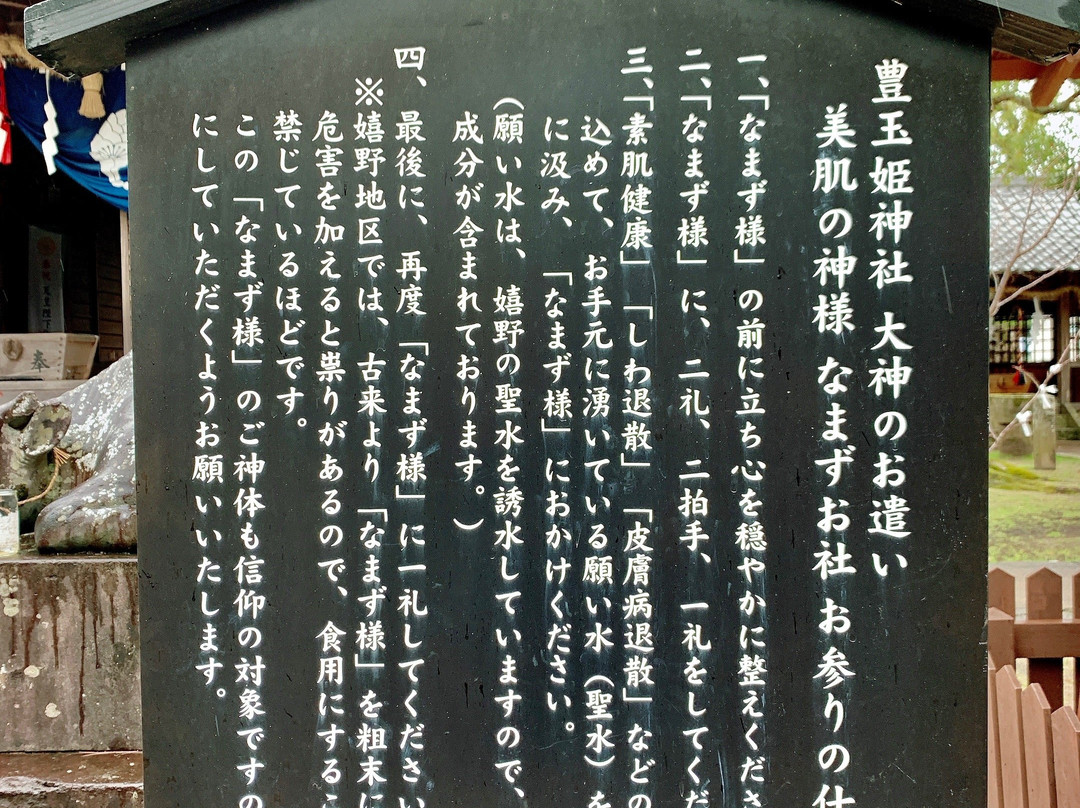 豊玉姫神社 大神のお遣い
美肌の神様 なまずお社 お参りの仕
一、「なまず様」の前に立ち心を穏やかに整えくださ
二、「なまず様」に、二礼、二拍手、一礼をしてくだ
三、「素肌健康」「しわ退散」「皮膚病退散」などの
込めて、お手元に湧いている願い水(聖水)を
に汲み、「なまず様」におかけください。
(願い水は、嬉野の聖水を誘水していますので、
成分が含まれております。)
四、最後に、再度「なまず様」に一礼してください
※嬉野地区では、古来より「なまず様」を粗末に
危害を加えると祟りがあるので、食用にするこ
禁じているほどです。
この「なまず様」のご神体も信仰の対象ですの
にしていただくようお願いいたします。
奉